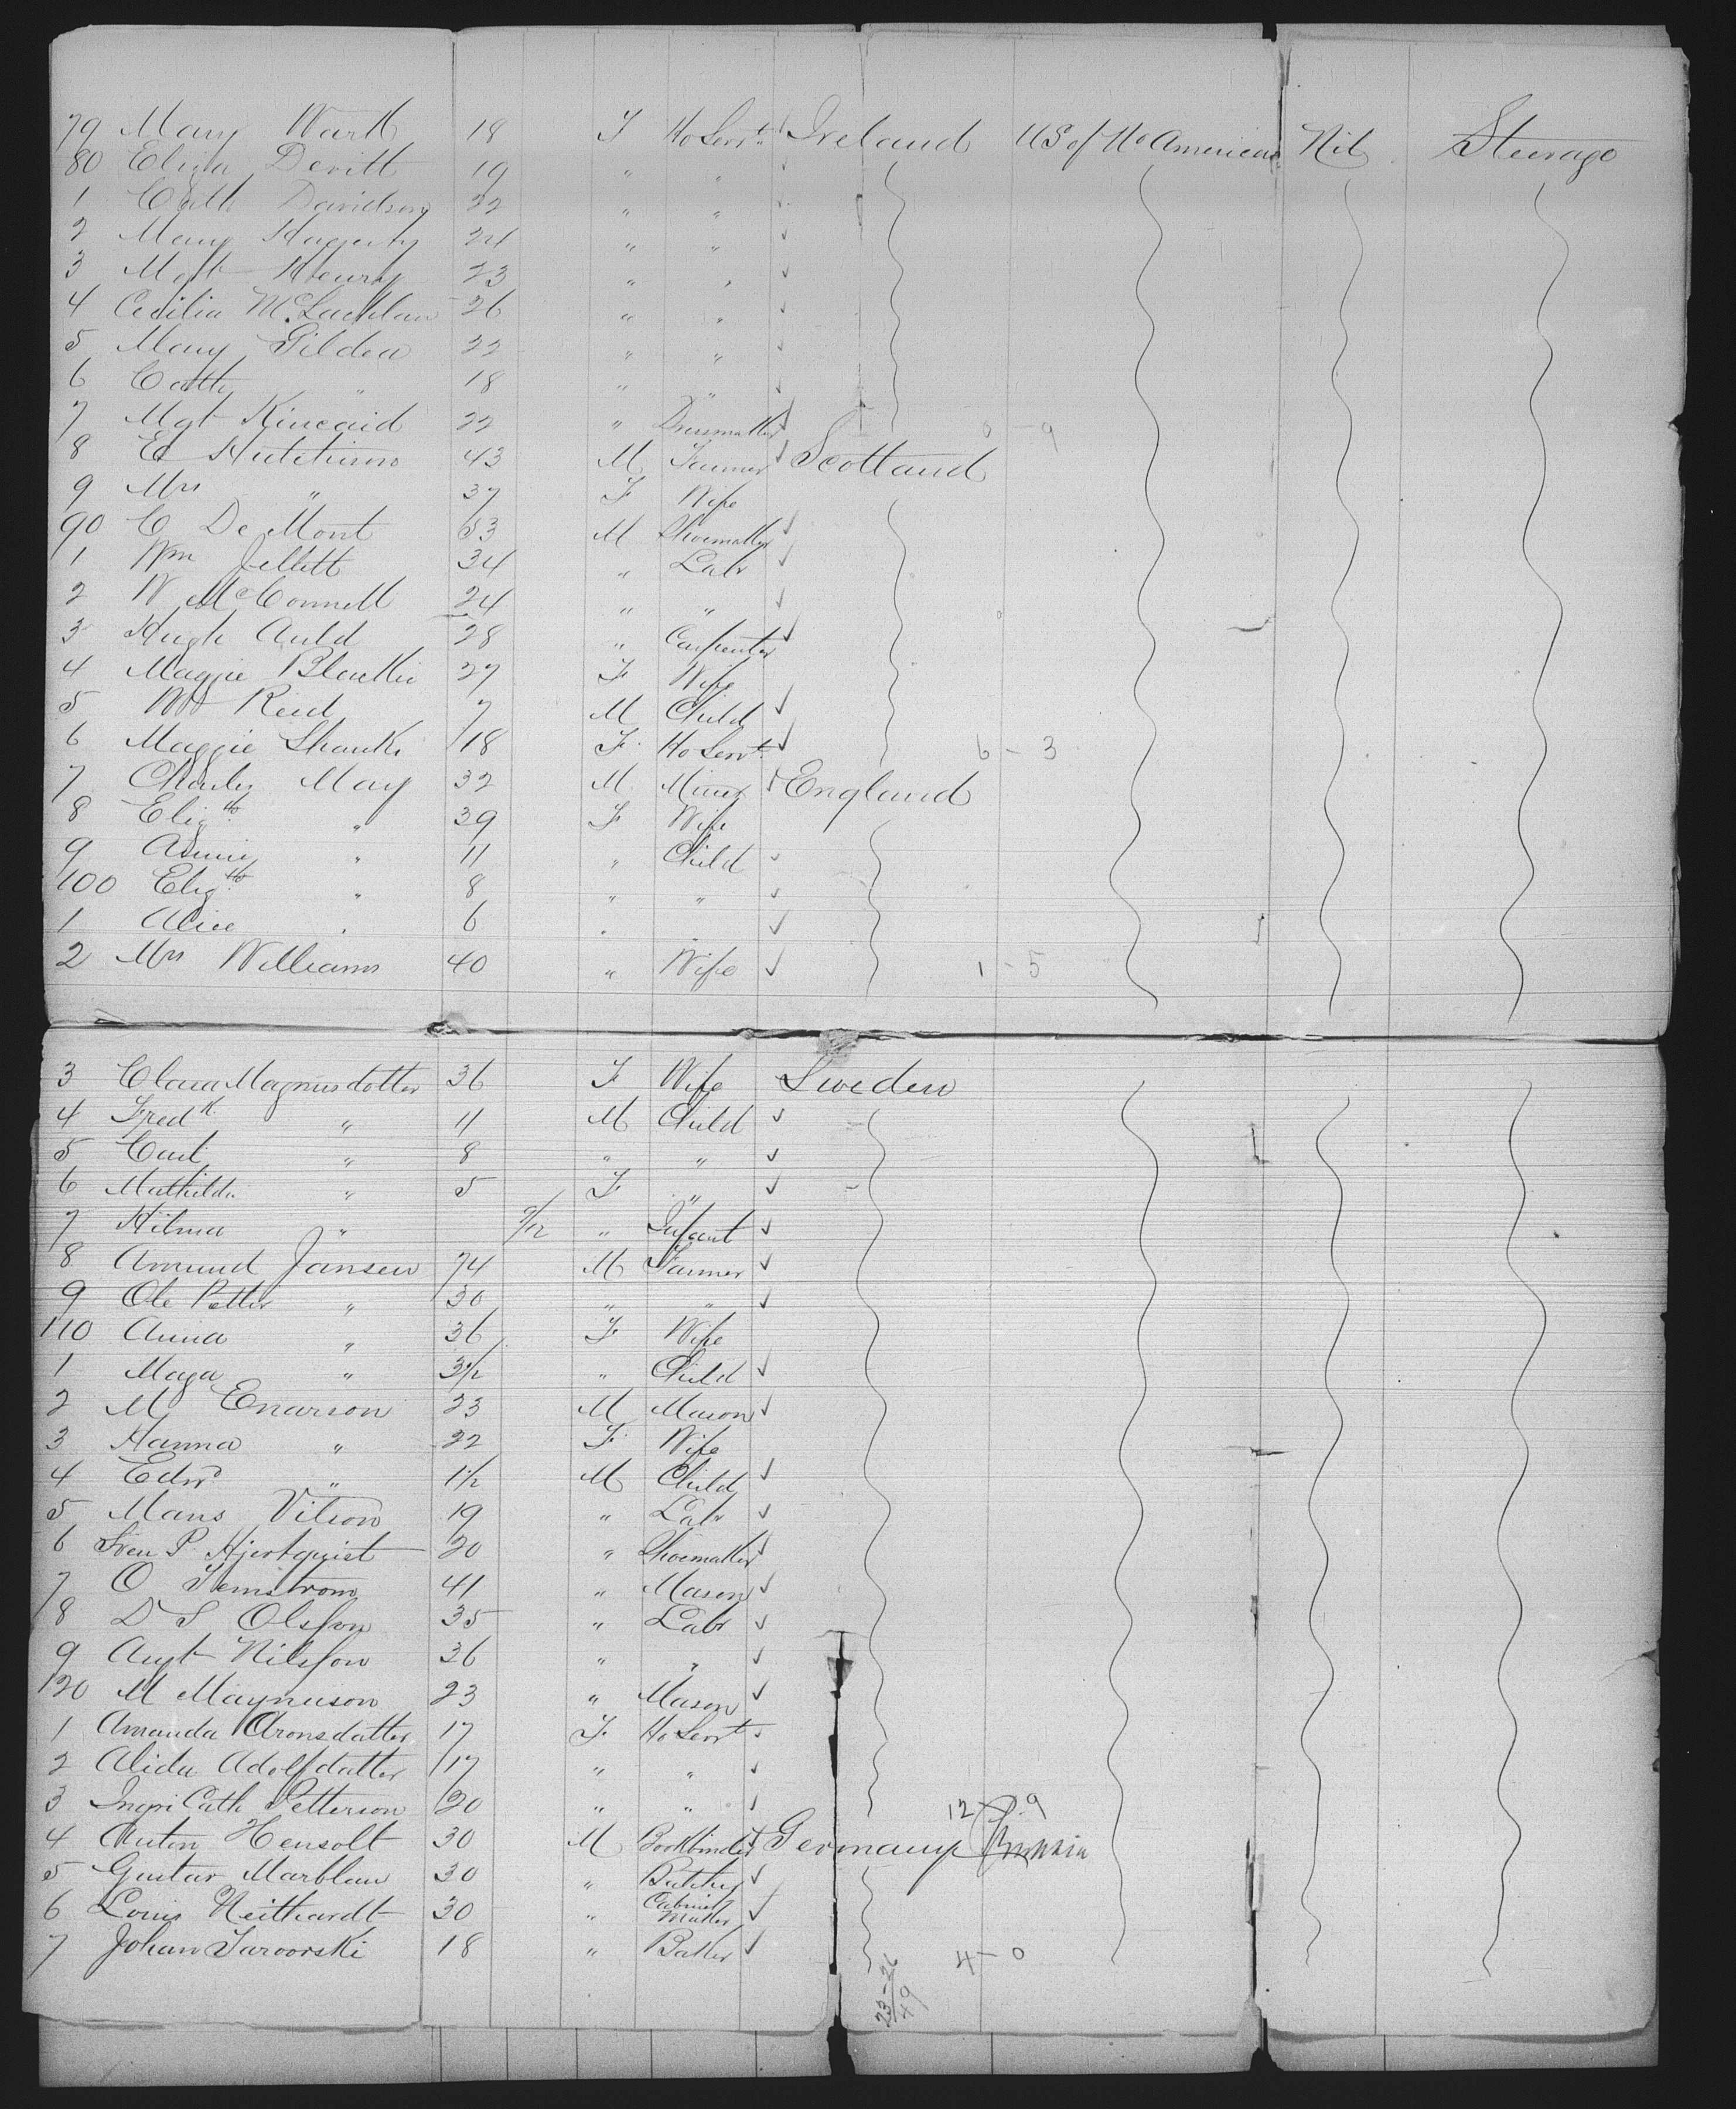 79 Mary Wark 18 F Ho Servt Ireland US of No America Nil Steerage
80 Eliza Devitt 19 " "
1 Cath Davidson 22 " "
2 Mary Hagerty 24 " "
3 Mgt Henry 23 " "
4 Cecilia McLachlan 26 " "
5 Mary Gildea 22 " "
6 Cath " 18 " "
7 Mgt Kincaid 22 " Dressmaker 0-9
8 Ed Hutchison 43 M Farmer Scotland
9 Mrs " 37 F Wife
90 C De Mont 53 M Shoemaker
1 Wm Jellett 34 " Labr
2 W McConnell 24 " "
3 Hugh Auld 28 " Carpenter
4 Maggie Blackie 27 F Wife
5 Reid 7 M Child
6 Maggie Shanks 18 F Ho Servt 6-3
7 Charles May 32 M Miner England
8 Elizth " 39 F Wife
9 Annie " 11 " Child
100 Elizth " 8 " "
1 Alice " 6 " "
2 Mrs Williams 40 " Wife 1-5
3 Clara Magnusdotter 36 F Wife Sweden
4 Fredk " 11 M Child
5 Carl " 8 " "
6 Mathilda " 5 F "
7 Hilma " 9/12 " Infant
8 Amund Jansen 74 M Farmer
9 Ole Petter " 30 " "
110 Anna " 36 F Wife
1 Maya " 3½ " Child
2 M Enarson 23 M Mason
3 Hanna " 22 F Wife
4 Edwd " 1½ M Child
5 Mans Vilson 19 " Labr
6 Sven P Hjertquist 20 " Shoemaker
7 O 41 " Mason
8 D S Olsson 35 " Labr
9 Augt Nilsson 36 " "
120 M Magnuson 23 " Mason
1 Amanda Aronsdatter 17 F Ho Servt
2 Alida Adolfdatter 17 " "
3 Cath Petterson 20 " " 12-9
4 Anton Hensolt 30 M Bookbinder Germany
5 Gustav Marblau 30 " Butcher
6 Louis Neithardt 30 " Cabinet Maker
7 Johan 18 " Baker 4-0
23-26
49